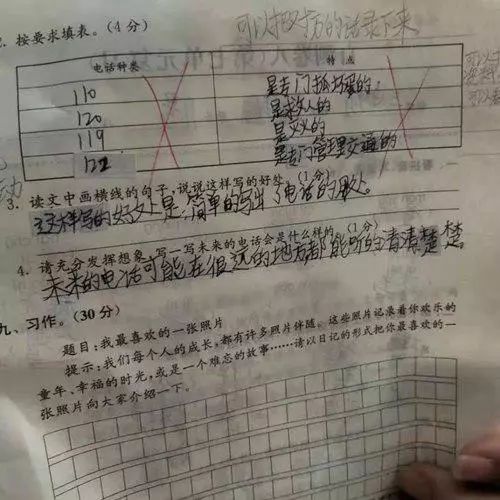 可以把对方的话录下来
2. 按要求填表。(4分)
电话种类 特点
110 是专门抓坏蛋的
120 是救人的
119 是灭火的
122 是专门管理交通的
3. 读文中画横线的句子,说说这样写的好处。(1分)
这样写的好处是,简单的写出了电话的用处。
4. 请充分发挥想象,写一写未来的电话会是什么样的。(1分)
未来的电话可能在很远的地方都能听的清清楚楚
九、习作。(30分)
题目:我最喜欢的一张照片
提示:我们每个人的成长,都有许多照片伴随。这些照片记录着你欢乐的
童年、幸福的时光,或是一个难忘的故事……请以日记的形式把你最喜欢的一
张照片向大家介绍一下。